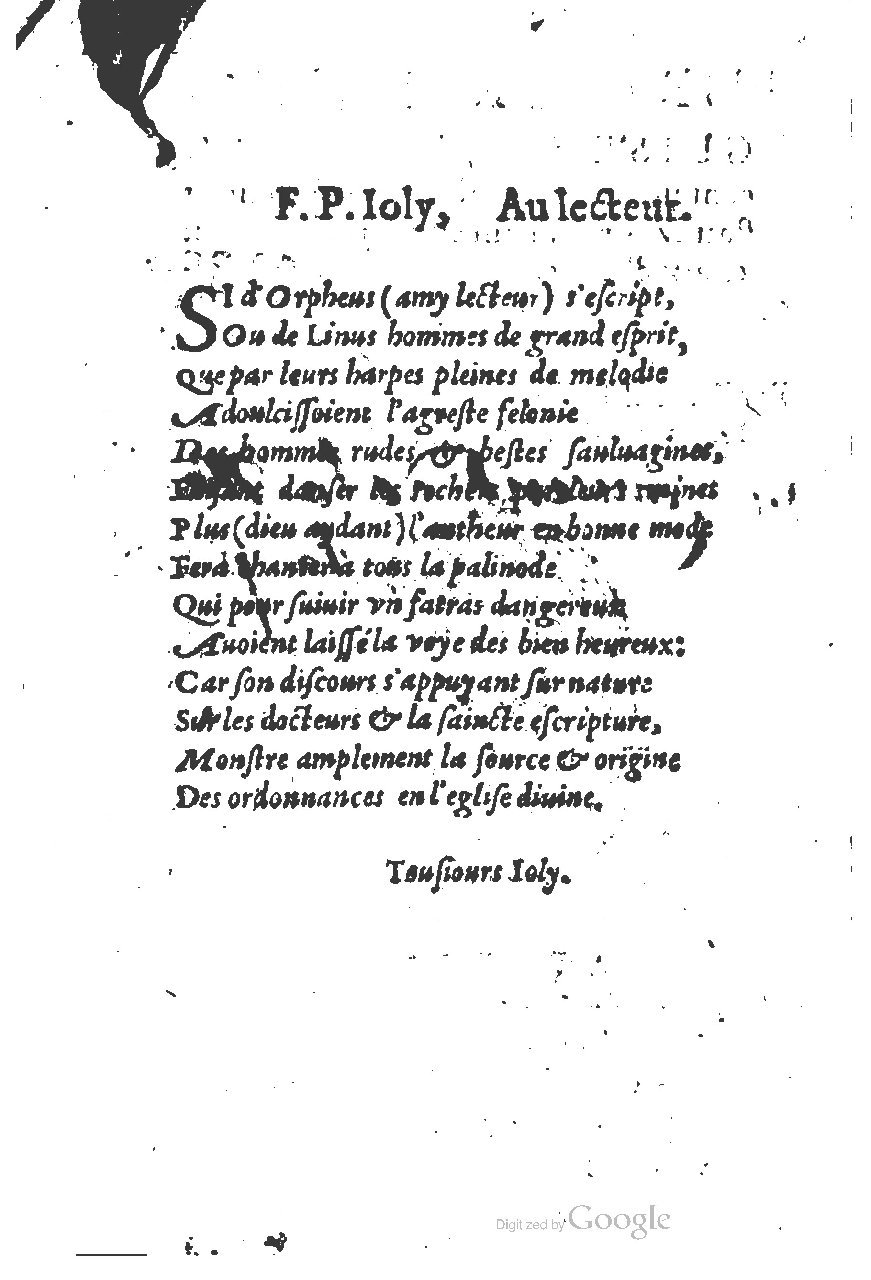 F. P. Ioly, Au lecteur.
SI d'Orpheus (amy lecteur) s'eſcript,
Ou de Linus hommes de grand eſprit,
Que par leurs harpes pleines de melodie
Adoulciſſoient l'agreſte felonie
Des hommes rudes, & beſtes ſauluagines,
danſer les rochers,
Plus (dieu aydant) l'autheur en bonne mode
Fera chanter à tous la palinode
Qui pour ſuiuir vn fatras dangereux
Auoient laiſſé la voye des bien heureux:
Car ſon diſcours s'appuyant ſur nature
Sur les docteurs & la ſaincte eſcripture,
Monſtre amplement la ſource & origine
Des ordonnances en l'egliſe diuine.
Touſiours Ioly.
Digitized by Google